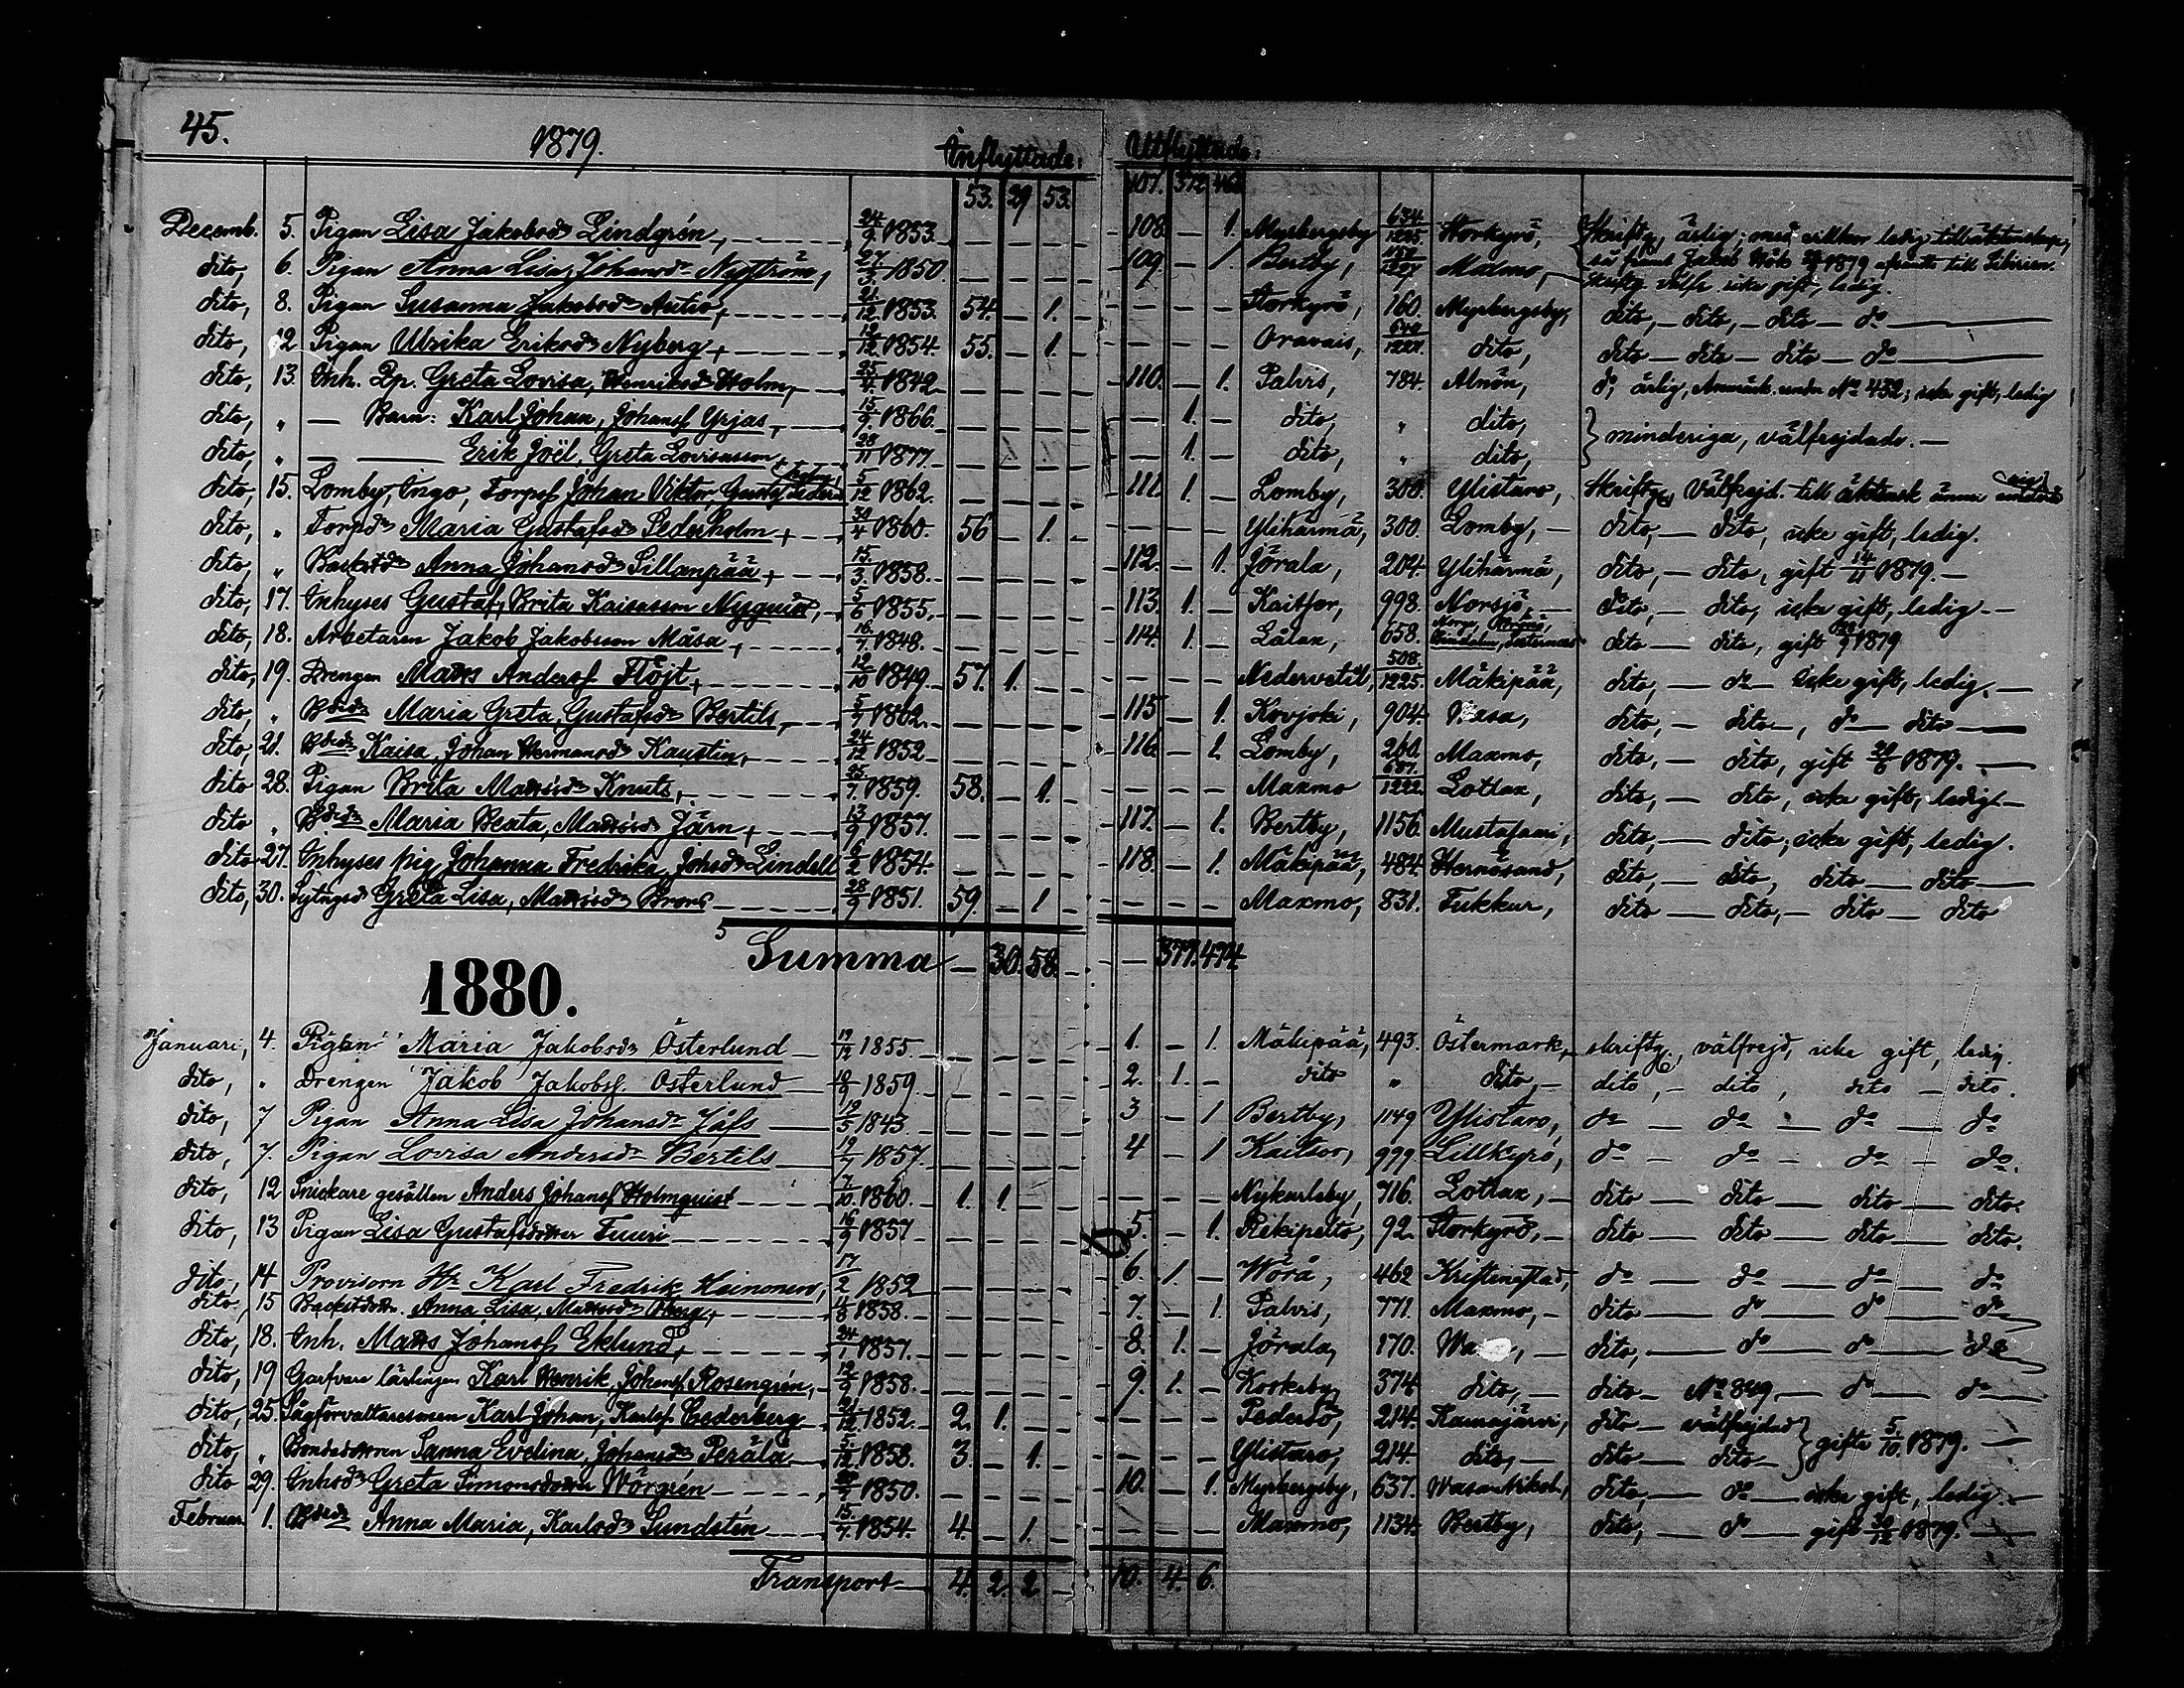 45. 1879. Inflyttade: Utflyttade:
53. 29 53. 107. 372 468
Decemb. 5. Pigan Lisa Jakobsdr Lindgrén, 24/9 1853. 108. — 1. Myrbergsby 634/1225 Storkyrö, Skriftg, ärlig; med villkor ledig till äktenskap,
dito, 6. Pigan Anna Lisa, Johansdr Nyström, 27/3 1850 109. — 1. Bertby, Maxmo, 1879 till Sibirien. Skriftg. välfr. icke gift, ledig.
dito, 8. Pigan Susanna Jakobsdr Autio, 21/12 1853. 54. — 1. Storkyrö, 160. Myrbergsby, dito, — dito, — dito — do
dito, 12 Pigan Ulrika Eriksdr Nyberg, 19/12 1854. 55. — 1. Oravais, dito, dito — dito — dito — do
dito, 13. Inh. Lp. Greta Lovisa, Henriksdr Holm, 25/4 1842 110. — 1. Palvis, 784. Alnön, do, ärlig, Anmärk. under No 432; icke gift, ledig
dito, „ — Barn: Karl Johan, Johansf Yrjas, 15/9 1866. — 1. dito, „ dito, } minderiga, välfrejdade. —
dito, „ — Erik Joël, Greta Lovisasson, 28/11 1877. — 1. dito, „ dito,
dito, 15. Lomby, Ingo, Torpsf Johan Viktor, Gustafs 5/12 1862. 111. 1. — Lomby, 300. Ylistaro, Skriftg, Välfrejd. till äktensk ännu
dito, „ Torpdr Maria Gustafsdr Sederholm, 30/4 1860. 56 — 1. Ylihärmä, 300. Lomby, — dito, — dito, icke gift, ledig.
dito, „ Backstdr Anna Johansdr Sillanpää, 15/3. 1858. 112. — 1. Jörala, 204. Ylihärmä, dito, — dito, gift 14/11 1879. —
dito, 17. Inhyses Gustaf, Brita Kaisasson Nyquist, 5/6 1855. 113. 1. — Kaitsor, 998. Norsjö, — dito, — dito, icke gift, ledig —
dito, 18. Arbetaren Jakob Jakobsson Måsa, 16/7 1848. 114. 1. — Lålax, 658. Norge, dito — dito, gift 1879
dito, 19. Drengen Matts Andersf Flöjt, 12/10 1849. 57. 1. — Nedervetil, 508./1225. Mäkipää, dito, — do — icke gift, ledig. —
dito, „ Bdedr Maria Greta, Gustafsdr Bertils, 5/7 1862. 115 — 1. Kovjoki, 904. Wasa, dito, — dito —, do — dito —
dito, 21. Bdedr Kaisa, Johan Hermansdr Kaustin, 24/12 1852 116. — 1. Lomby, 260. Maxmo, dito, — dito, gift 29/6 1879. —
dito 28. Pigan Brita Mattsdr Knuts, 25/7. 1859. 58. — 1. Maxmo 687./1222. Lottax, dito, — dito, icke gift, ledig —
dito „ Bdedr Maria Beata, Mattsdr Järn, 13/9 1857. 117. — 1. Bertby, 1156. Mustasaari, dito, — dito, icke gift, ledig.
dito 27. Inhyses pig Johanna Fredrika, Johsdr Lindell 6/2 1854. 118. — 1. Mäkipää, 484. Hernösand, dito, — dito, dito — dito —
dito, 30. Sytngsd Greta Lisa, Mattsdr Brors 28/9 1851. 59. — 1. Maxmo, 831. Tukkur, dito — dito, — dito — dito
Summa — 30. 58. — 377. 474.
1880.
Januari, 4. Pigan Maria Jakobsdr Österlund 19/12 1855. 1. — 1. Mäkipää, 493. Östermark, skriftg., välfrejd, icke gift, ledig.
dito, „ Drengen Jakob Jakobsf. Österlund 10/9 1859. 2. 1. — dito „ dito, — dito, — dito, dito — dito.
dito, 7 Pigan Anna Lisa Johansdr Jåfs 19/5 1843 3 — 1 Bertby, 1149 Ylistaro, do — do — do — do
dito, 7. Pigan Lovisa Andersdr Bertils 19/7 1857. 4 — 1 Kaitsor, 999 Lillkyrö, do — do — do — do.
dito, 12 Snickare gesällen Anders Johansf Holmquist 7/10 1860. 1. 1. Nykarleby, 716. Lottax, — dito — dito — dito — dito.
dito, 13 Pigan Lisa Gustafsdotter Fuuri 16/9 1857 5. — 1. Rekipelto, 92. Storkyrö, — dito — dito — dito — dito.
dito, 14 Provisorn Hr Karl Fredrik Heinonen, 17/2 1852 6. 1. — Wörå, 462 Kristinestad, do — do — do — do
dito, 15 Backstdottr. Anna Lisa, Mattsdr Öberg, 1858. 7. — 1. Palvis, 771. Maxmo, — dito — do — do — do
dito, 18. Inh. Matts Johansf Eklund, 24/1 1857. 8. 1. — Jörala, 170. Wa , — dito, — do — do — do
dito, 19 Garfvare lärlingen Karl Henrik, Johansf Rosengrén, 12/9 1858. 9. 1. — Koskeby, 374 dito, — dito — No 849. — do — do
dito, 25. Sågförvaltaresonen Karl Johan, Karlsf Cederberg 1852. 2. 1. Pedersö, 214. Kauhajärvi, dito — välfrejdad } gifta 5/10. 1879. —
dito, „ Bondedottren Sanna Evelina, Johansdr Perälä 5/12 1858. 3. — 1. Ylistaro, 214. dito, — dito — dito —
dito 29. Inhsdr Greta Simonsdotter Wörgrén 1850. 10. — 1. Myrbergsby, 637. Wasa Nikol., dito, — do — icke gift, ledig. —
Februar. 1. Bdedr Anna Maria, Karlsdr Sundstén 15./7 1854. 4. — 1. Maxmo, 1134. Bertby, dito, — do — gift 30/12 1879. —
Transport — 4. 2. 2. — 10. 4. 6.